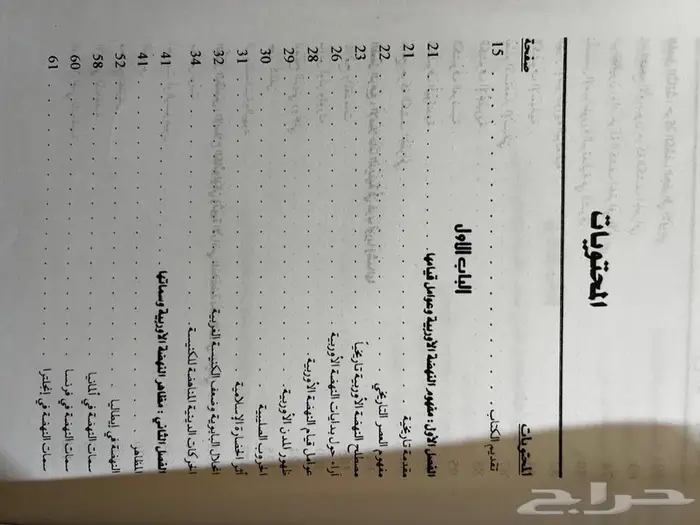 المحتويات
المحتويات صفحة
تقديم الكتاب 15
الباب الأول
الفصل الأول: مفهوم النهضة الأوربية وعوامل قيامها 21
مقدمة تاريخية 21
مفهوم العصر التاريخي 22
مصطلح النهضة الأوربية تاريخياً 23
آراء حول بدايات النهضة الأوربية 26
عوامل قيام النهضة الأوربية 28
ظهور المدن الأوربية 29
الحروب الصليبية 30
أثر الحضارة الإسلامية 31
انحلال البابوية وضعف الكنيسة الغربية 32
الحركات الدينية المناهضة للكنيسة 34
الفصل الثاني: مظاهر النهضة الأوربية وسماتها 41
المظاهر 41
النهضة في إيطاليا 52
سمات النهضة في ألمانيا 58
سمات النهضة في فرنسا 60
سمات النهضة في إنجلترا 61
حراج